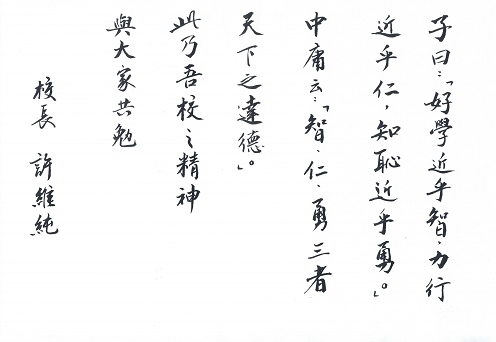 子曰：「好學近乎智，力行
近乎仁，知恥近乎勇。」
中庸云：「智、仁、勇三者
天下之達德」。
此乃吾校之精神
與大家共勉
校長 許維純